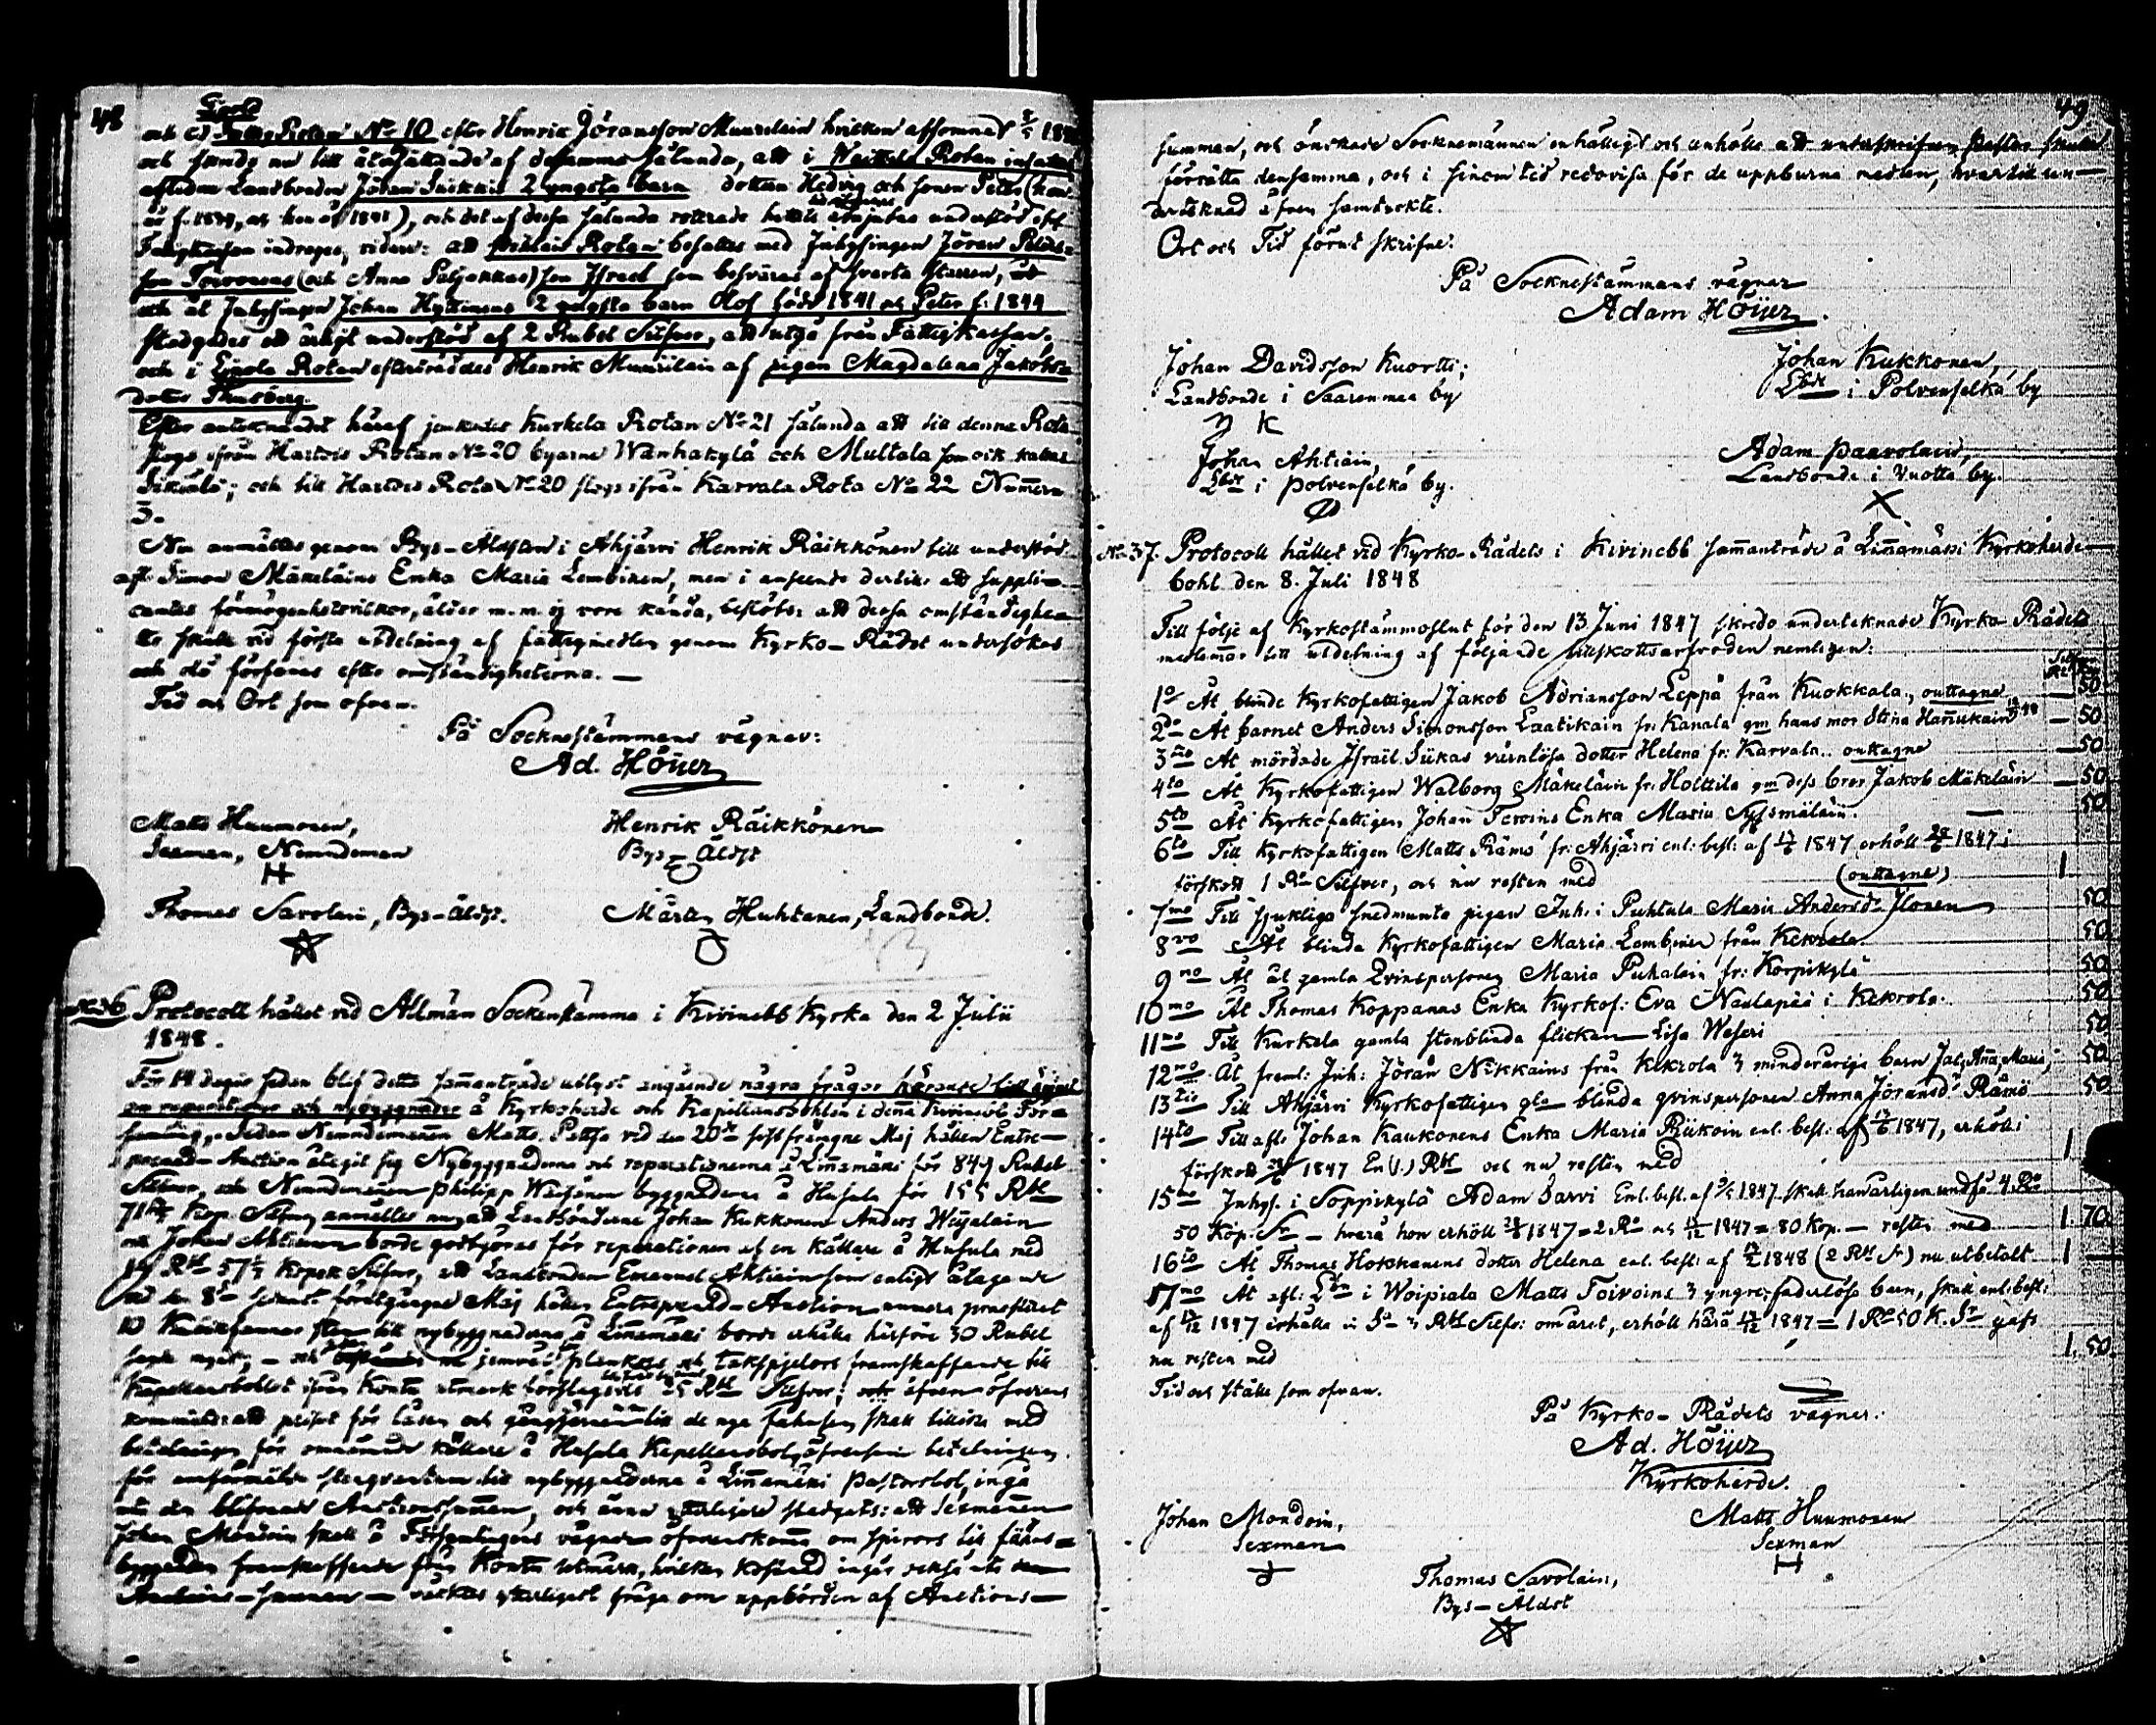 48
och c) Rotan No 10 efter Henrik Jöransson Muurilain hvilken afsomnat
och skreds nu till återsättande af desamma sålunda, att i Waittela Rotan insattes
aflidne Landbonden Jöran Suikkis 2 yngsta barn dottren Hedvig och sonen Peter (han
år f. 1839, och hon år 1841), och det af dessa sålunda roterade hittils åtnjutna understöd ifrån
Fattigkassan indroges, vidare: att Rotan besattes med Inhysingen Jöran Peders-
son Toivonens (och Anna Paljakkas) son Israel som besväras af svarta starren,
och åt Inhysingen Johan Hyttinens 2 yngsta barn Olof född 1841 och Peter f. 1844
stadgades ett årligt understöd af 2 Rubel Silfver, att utgå från Fattigkassan,
och i Lipola Rotan efterträddes Henrik Muurilain af pigan Magdalena Jakobs-
dotter
Efter antecknandet häraf jemkades Kurkela Rotan No 21 sålunda att till denna Rota
togs ifrån Hartois Rotan No 20 byarne Wanhakylä och Multala som ock kallas
Sikiälä; och till Hartois Rota No 20 slogs ifrån Karvala Rota No 22 Numern
3.
Nu anmältes genom Bys-Äldsten i Ahjärvi Henrik Räikkönen till understöd
afl. Simon Mäkeläins Enka Maria Lembinen, men i anseende dertill att suppli-
cantes förmögenhetsvilkor, ålder m. m. ej vore kända, beslöts: att dessa omständighe-
ter skulle vid första utdelning af fattigmedlen genom Kyrko-Rådet undersökas
och då förfaras efter omständigheterna. —
Tid och Ort som ofvan.
På Socknestämmans vägnar:
Ad. Höijer
Matts Huumonen,
Sexman, Nämndeman
H
Henrik Räikkönen
Bys-Äldst
Thomas Savolain, Bys-Äldst.
Mårten Huhtanen, Landbonde.
No 36 Protocoll hållet vid Allmän Sockenstämma i Kivinebb Kyrka den 2 Julii
1848.
För 14 dagar sedan blef detta sammanträde utlyst angående några frågor hörande till
om reparationer och nybyggnader å Kyrkoherde och Kapellansbohlen i denna Kivinebb För-
samling. Sedan Nämndemannen Matts Pettst vid den 20de sistförgångne Maj hållen Entre-
prenad-Auction åtagit sig Nybyggnaderna och reparationerna å Linnamäki för 849 Rubel
Silfver, och Nämndemannen Philipp Waitinen byggnaderne å Husula för 155 Rbl
71 Kop. Silfver, anmältes nu, att Landbönderne Johan Kukkonen Anders Weijalain
och Johan Ahtiainen borde godtgöras för reparationen af en källare å Husula med
14 Rbl 57 Kopek Silfver, att Landbonden Emanuel Ahtiain som enligt åtagande
vid den 8de förutgångne Maj hållen Entreprenad-Auction numera presterat
10 Kubikfamnar sten till nybyggnaderna å Linnamäki borde erhålla härföre 30 Rubel
sagde mynt; — och jemväl plankors och takspjelors framskaffande till
Kapellansbolet ifrån Konta utmark 25 Rbl Silfver; och äfven öfverens
kommits: att priset för låsen och gångjernen till de nya fähusen skall tillika med
betalningen för omnämnde källare å Husula Kapellansbol, äfvensom betalningen
för stenqvantum till nybyggnaderna å Linnamäki Pastorsbol, ingå
uti den blifvande Auctionssumman, och ännu ytterligare stadgats: att Sexmannen
Johan Mondoin skall å Församlingens vägnar öfverenskomma om sparrors till fähus-
byggnaden framskaffande från Konta utmark, hvilken kostnad ingår också uti
Auctions-summan — väcktes ytterligare fråga om uppbörden af Auctions-
49
summan, och önskade Socknemännen enhälligt och anhöllo att undertecknad Pastor skulle
förrätta densamma, och i sinom tid redovisa för de uppburna medlen, hvartill un-
dertecknad äfven samtyckte.
Ort och Tid förut skrifne.
På Socknestämmans vägnar
Adam Höijer.
Johan Davidsson Kuortti;
Landbonde i Saarenmaa by
Johan Kukkonen,
Lbde i Polvenselkä by
Johan Ahtiain,
Lbde i Polvenselkä by.
Adam Paavolain,
Landbonde i Vuotta by.
X
No 37. Protocoll hållet vid Kyrko-Rådets i Kivinebb sammanträde å Linnamäki Kyrkoherde-
bohl den 8. Juli 1848
Till följe af Kyrkostämmoslut för den 13 Juni 1847 skredo undertecknade Kyrko-Rådets
medlemmar till utdelning af följande tillskottsarfvoden nemligen:
1o Åt blinde Kyrkofattigen Jakob Adriansson Leppä från Kuokkala, outtagne — 50
2do Åt barnet Anders Simonsson Laatikain fr. Kanala gm hans mor Stina Hannukain — 50
3tio Åt mördade Israël Siikas värnlösa dotter Helena fr: Karvala.. outtagne — 50
4to Åt Kyrkofattigen Walborg Mäkeläin fr: Holttila gm dess bror Jakob Mäkeläin — 50
5to Åt Kyrkofattigen Johan Tervins Enka Maria Sysmäläin. — 50
6to Till Kyrkofattigen Matts Rämö fr: Ahjärvi enl: besl: af 1847 erhöll 1847 i
förskott 1 Ro Silfver, och nu resten med (outtagne) 1
7mo Till sjukliga snedmunta pigan Inh. i Puhtula Maria Andersdr Ilonen 50
8vo Åt blinda Kyrkofattigen Maria Lembinen från Kekrola 50
9no Åt ål gamla Qvinspersonen Maria Puhalain fr: Korpikylä 50
10mo Åt Thomas Koppanas Enka Kyrkof: Eva Naulapää i Kekrola. 50
11mo Till Kurkela gamla stenblinda flickan Lisa Weseri 50
12mo Åt framl: Inh: Jöran Nikkains från Kekrola 3 minderåriga barn Jac, Anna, Maria, 50
13tio Till Ahjärvi Kyrkofattigen gla blinda qvinspersonen Anna Jöransdr Rämö 50
14to Till afl: Johan Kaukonens Enka Maria Riikoin enl. besl: af 1847, erhöll i
förskott 1847 En (1.) Rbl och nu resten med 1
15no Inhys. i Soppikylä Adam Sarvi Enl. besl. af 1847. skall han årligen undfå 4 Ro
50 Kop. Sr — hvarå hon erhöll 1847 = 2 Ro och 1847 = 80 Kop. — resten med 1. 70.
16to Åt Thomas Hokkanens dotter Helena enl. besl: af 1848 (2 Rbl Sr) nu utbetalt 1 —
17mo Åt afl: Lbn i Woipiala Matts Toivoins 3 yngre, faderlösa barn, skall enl: besl:
af 1847 erhålla 3 Rbl Silfr: om året, erhöll härå 1847 = 1 Ro 50 K. Sr gafs
nu resten med 1. 50.
Tid och ställe som ofvan.
På Kyrko-Rådets vägnar:
Ad. Höijer
Kyrkoherde.
Johan Mondoin,
Sexman
Matts Huumonen
Sexman
H
Thomas Savolain,
Bys-Äldst